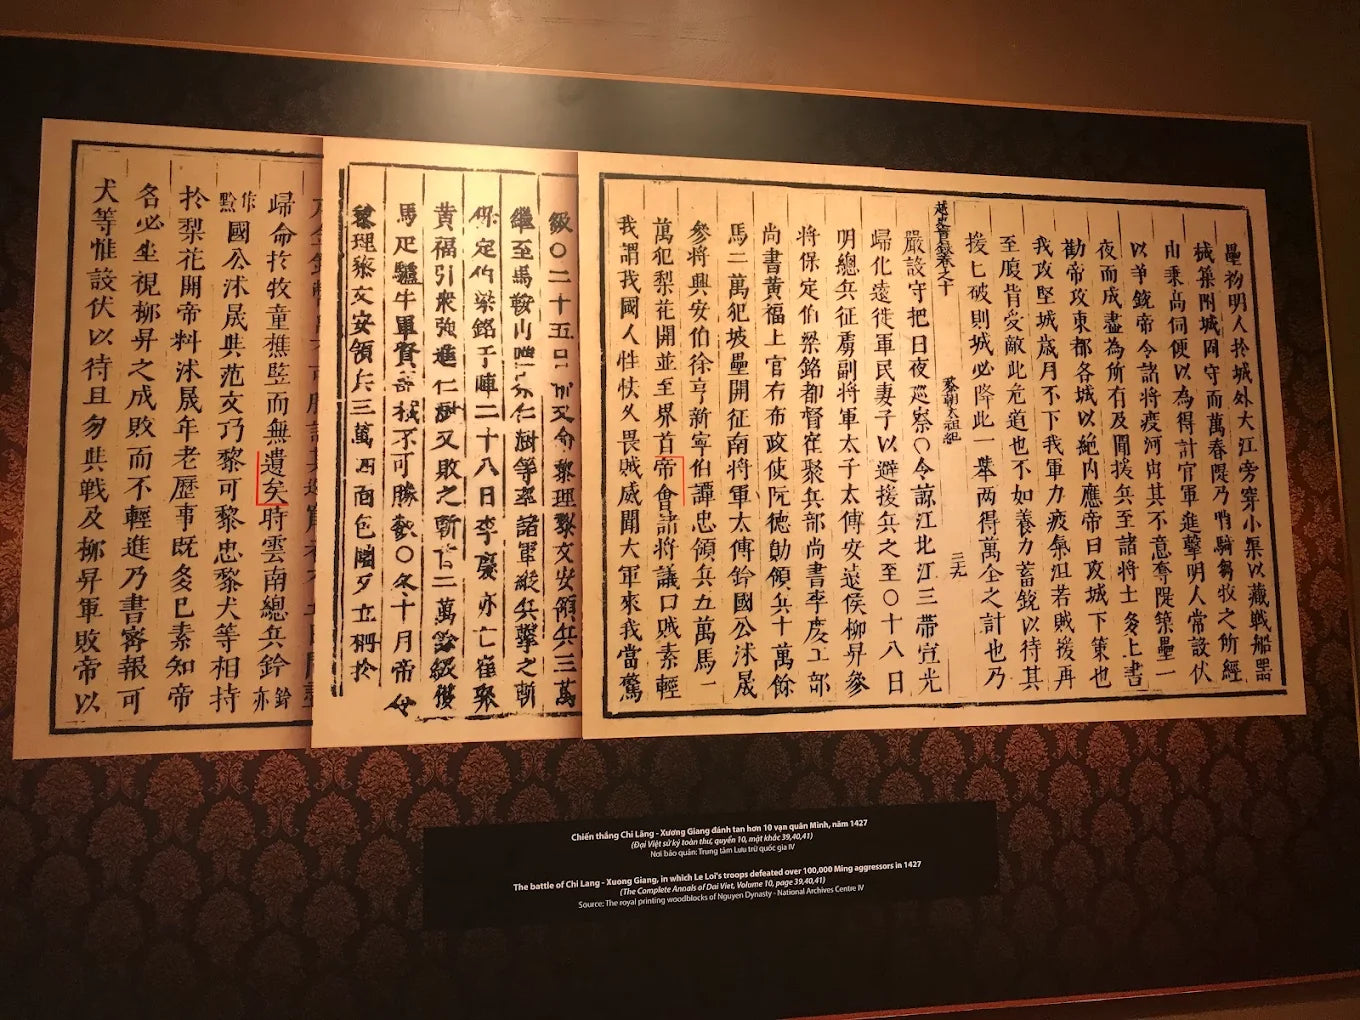 壘拘明人於城外大江旁穿小渠以藏戰船器
械築閉城固守而萬春隄乃哨騎芻牧之所經
由乘高伺便以為得計官軍進擊明人常設伏
以爭銳帝令諸將疲河內其不意奪隄築壘一
夜而成盡為所有及聞援兵至諸將士多上書
勸帝攻東都各城以絕內應帝曰攻城下策也
我攻堅城歲月不下我軍力疲氣沮若賊援再
至腹背受敵此危道也不如養力蓄銳以待其
援上破則城必降此一舉两得萬全之計也乃
越史實錄卷之十 黎朝太祖紀 三九
嚴設守把日夜巡察〇令諒江北江三帶宣光
歸化遠徙軍民妻子以避援兵之至〇十八日
明總兵征虜副將軍太子太傅安遠侯柳昇參
將保定伯梁銘都督崔聚兵部尚書李慶工部
尚書黃福上官右布政使阮德勛領兵十萬餘
馬二萬犯坡壘開征南將軍太傅鈐國公沐晟
參將興安伯徐亨新寧伯譚忠領兵五萬馬一
萬犯梨花開並至界首帝會諸將議曰賊素輕
我謂我國人性怯久畏賊威聞大軍來我當驚
級〇二十五日 又命黎理黎文安領兵三萬
繼至馬鞍山 仁澍等率諸軍縱兵擊之斬
保定伯梁銘于陣二十八日李慶亦亡崔聚
黃福引衆強進仁澍又敗之斬首二萬餘級獲
馬疋驢牛軍資器械不可勝數〇冬十月帝令
黎理黎文安領兵三萬 面包圍 立柵於
歸命於牧童樵豎而無遺矣時雲南總兵鈐 鈐亦
作黔 國公沐晟與范文巧黎可黎忠黎犬等相持
於梨花開帝料沐晟年老歷事既多已素知帝
名必坐視柳昇之成敗而不輕進乃書密報可
犬等惟設伏以待且勿與戰及柳昇軍敗帝以
Chiến thắng Chi Lăng - Xương Giang đánh tan hơn 10 vạn quân Minh, năm 1427
(Đại Việt sử ký toàn thư, quyển 10, mặt khắc 39,40,41)
Nơi bảo quản: Trung tâm Lưu trữ quốc gia IV
The battle of Chi Lang - Xuong Giang, in which Le Loi's troops defeated over 100,000 Ming aggressors in 1427
(The Complete Annals of Dai Viet, Volume 10, page 39,40,41)
Source: The royal printing woodblocks of Nguyen Dynasty - National Archives Centre IV